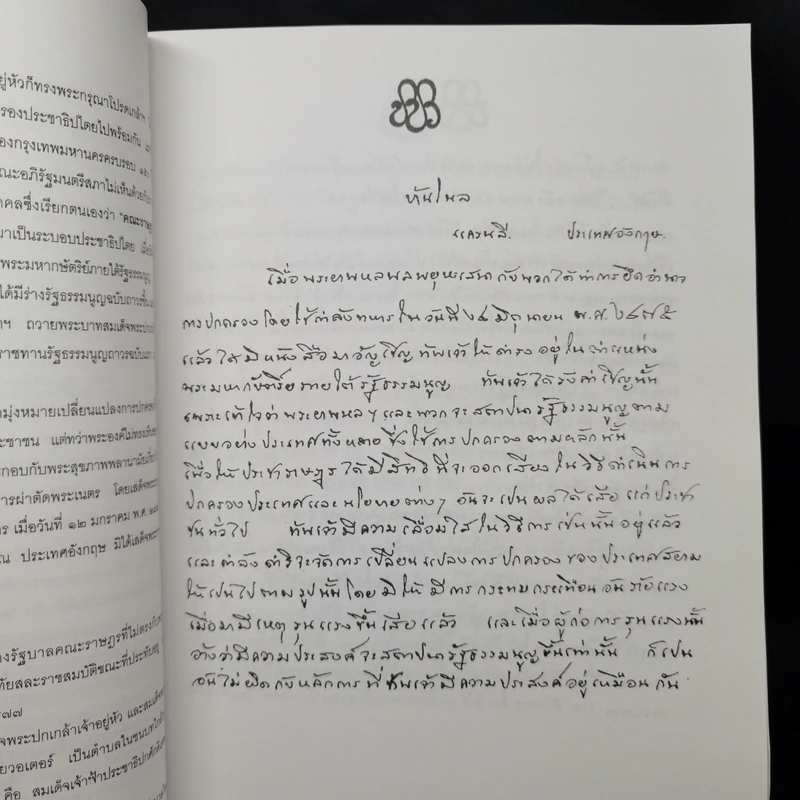 ยู่หัวก็ทรงพระกรุณาโปรดเกล้าฯ
ครองประชาธิปไตยไปพร้อมกัน
องกรุงเทพมหานครครบรอบ ๑๕๐
ณะอภิรัฐมนตรีสภาไม่เห็นด้วย
คคลซึ่งเรียกตนเองว่า "คณะราษฎร
มาเป็นระบอบประชาธิปไตย
พระมหากษัตริย์ภายใต้รัฐธรรมนูญ
ได้มีร่างรัฐธรรมนูญฉบับถาวรขึ้น
าฯ ถวายพระบาทสมเด็จพระปก
ราชทานรัฐธรรมนูญถาวรฉบับ
มุ่งหมายเปลี่ยนแปลงการปกครอง
ระชาชน แต่ทว่าพระองค์ไม่ทรง
กอบกับพระสุขภาพพลานามัย
การผ่าตัดพระเนตร โดยเสด็จ
ร เมื่อวันที่ ๑๒ มกราคม พ.ศ.
ณ ประเทศอังกฤษ มิได้เสด็จ
งรัฐบาลคณะราษฎรที่ไม่ตรงกับ
ทัยสละราชสมบัติขณะที่ประทับอยู่
๗๗
จพระปกเกล้าเจ้าอยู่หัว และสมเด็จ
ยวอเตอร์ เป็นตำบลในชนบท
คือ สมเด็จเจ้าฟ้าประชาธิปกศักดิ
บ้านโนล
แครนลี. ประเทศอังกฤษ.
เมื่อพระยาพหลพลพยุหเสนา กับพวกได้ทำการยึดอำนาจ
การปกครอง โดยใช้กำลังทหาร ในวันที่ ๒๔ มิถุนายน พ.ศ. ๒๔๗๕
แล้ว ได้มีหนังสือมาอัญเชิญข้าพเจ้าให้ดำรงอยู่ในตำแหน่ง
พระมหากษัตริย์ภายใต้รัฐธรรมนูญ ข้าพเจ้าได้รับคำเชิญนั้น
เพราะเข้าใจว่าพระยาพหลฯ และพวกจะสถาปนารัฐธรรมนูญตาม
แบบอย่างประเทศทั้งหลาย ซึ่งใช้การปกครองตามหลักนั้น
เพื่อให้ประชาราษฎรได้มีสิทธิที่จะออกเสียงในวิธีดำเนินการ
ปกครองประเทศและนโยบายต่างๆ อันจะเป็นผลได้เสียแก่ประชา
ชนทั่วไป ข้าพเจ้ามีความเลื่อมใสในวิธีการเช่นนั้นอยู่แล้ว
และกำลังดำริจะจัดการเปลี่ยนแปลงการปกครองของประเทศสยาม
ให้เป็นไปตามรูปนั้น โดยมิให้มีการกระทบกระเทือนอันร้ายแรง
เมื่อมามีเหตุรุนแรงขึ้นเสียแล้ว และเมื่อผู้ก่อการรุนแรงนั้น
อ้างว่ามีความประสงค์จะสถาปนารัฐธรรมนูญขึ้นเท่านั้น ก็เป็น
อันไม่ผิดกับหลักการที่ข้าพเจ้ามีความประสงค์อยู่เหมือนกัน